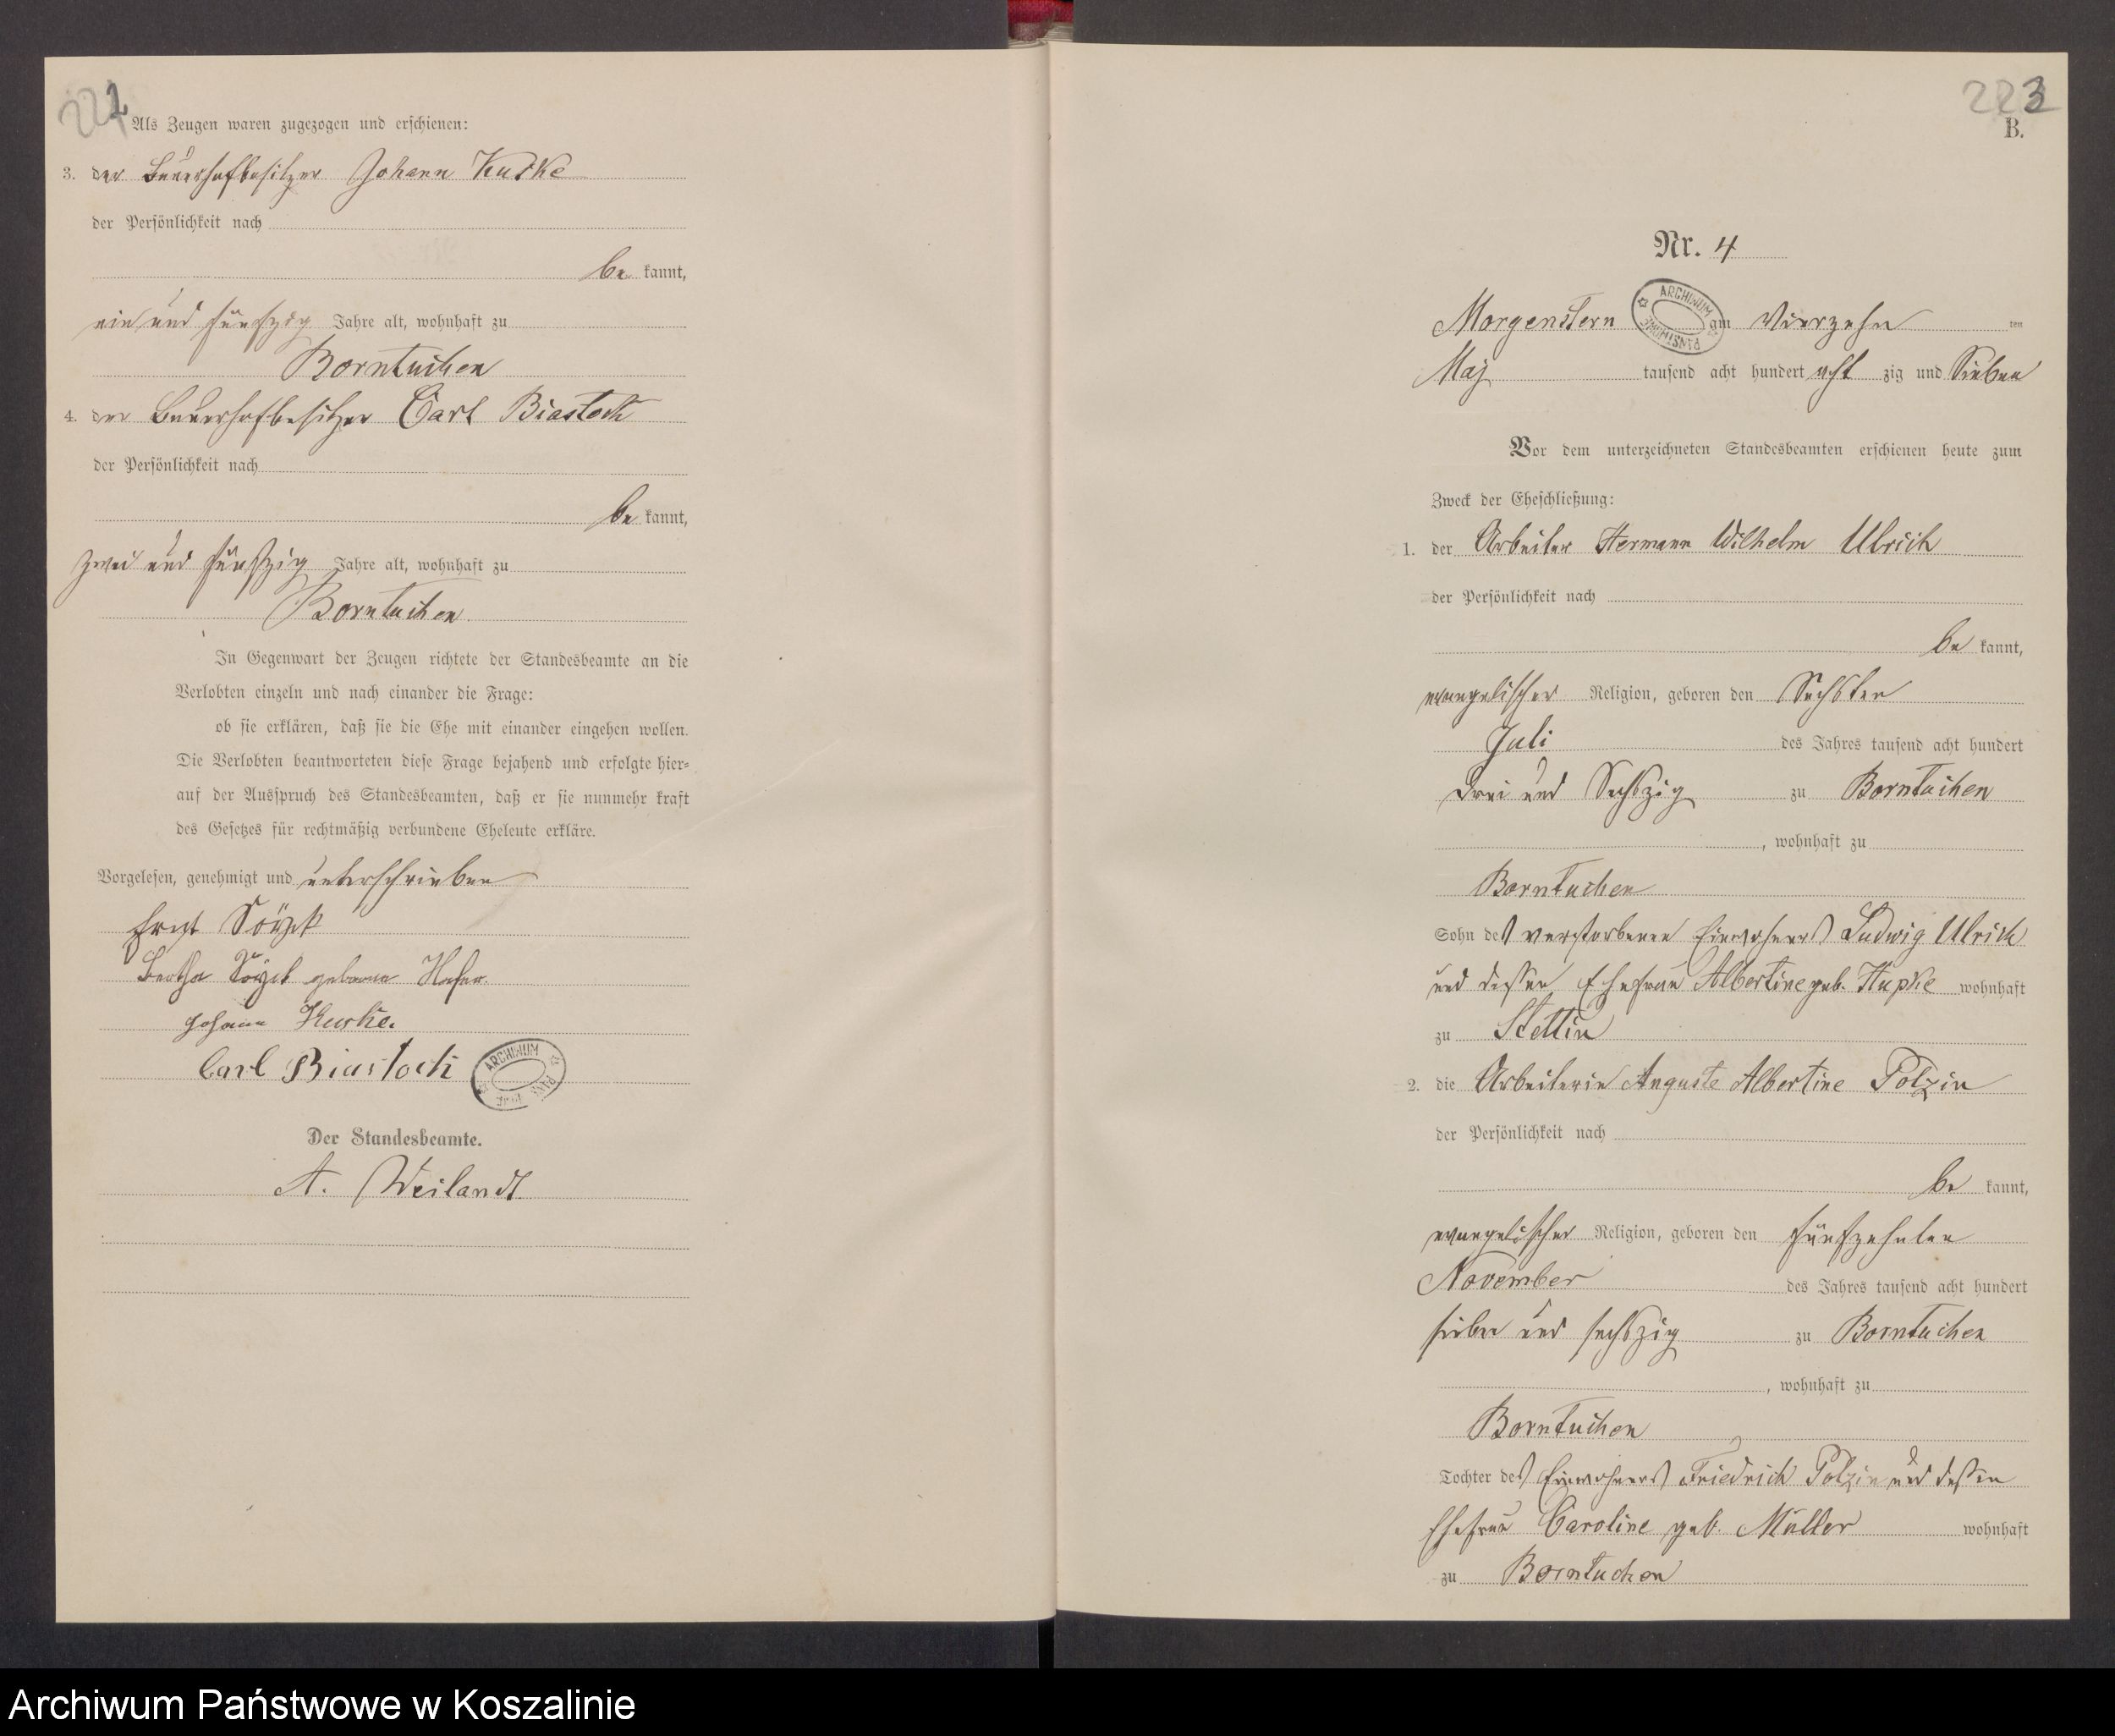 222
Als Zeugen waren zugezogen und erschienen:
3. der Bauerhofbesitzer Johann Kuske
der Persönlichkeit nach
be kannt,
ein und fünfzig Jahre alt, wohnhaft zu
Borntuchen
4. der Bauerhofbesitzer Carl Biastock
der Persönlichkeit nach
be kannt,
zwei und fünfzig Jahre alt, wohnhaft zu
Borntuchen
In Gegenwart der Zeugen richtete der Standesbeamte an die
Verlobten einzeln und nach einander die Frage:
ob sie erklären, daß sie die Ehe mit einander eingehen wollen.
Die Verlobten beantworteten diese Frage bejahend und erfolgte hier-
auf der Ausspruch des Standesbeamten, daß er sie nunmehr kraft
des Gesetzes für rechtmäßig verbundene Eheleute erkläre.
Vorgelesen, genehmigt und unterschrieben
Bertha geborene
Johann Kuske.
Carl Biastock
ARCHIWUM
Der Standesbeamte.
A. Weilandt
223
B.
Nr. 4
Morgenstern am Vierzehn ten
Maj tausend acht hundert acht zig und Sieben
ARCHIWUM PAŃSTWOWE
Vor dem unterzeichneten Standesbeamten erschienen heute zum
Zweck der Eheschließung:
1. der Arbeiter Hermann Wilhelm Ulrich
der Persönlichkeit nach
be kannt,
evangelischer Religion, geboren den Sechsten
Juli des Jahres tausend acht hundert
drei und Sechszig zu Borntuchen
, wohnhaft zu
Borntuchen
Sohn des verstorbenen Einwohners Ludwig Ulrich
und dessen Ehefrau Albertine geb. Hupke wohnhaft
zu Stettin
2. die Arbeiterin Auguste Albertine Polzin
der Persönlichkeit nach
be kannt,
evangelischer Religion, geboren den fünfzehnten
November des Jahres tausend acht hundert
sieben und sechszig zu Borntuchen
, wohnhaft zu
Borntuchen
Tochter des Einwohners Friedrich Polzin und dessen
Ehefrau Caroline geb. Müller wohnhaft
zu Borntuchen
Archiwum Państwowe w Koszalinie